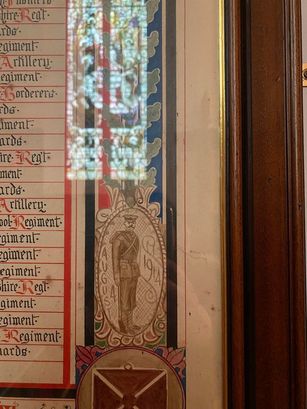 shire Regt.
ards.
Regiment.
Artillery.
Regiment.
Borderers.
rds.
iment.
ards.
ire Regt.
ment.
ards.
Artillery.
ool Regiment.
egiment.
egiment.
Regiment.
shire Regt.
giment.
egiment.
Regiment.
uards.